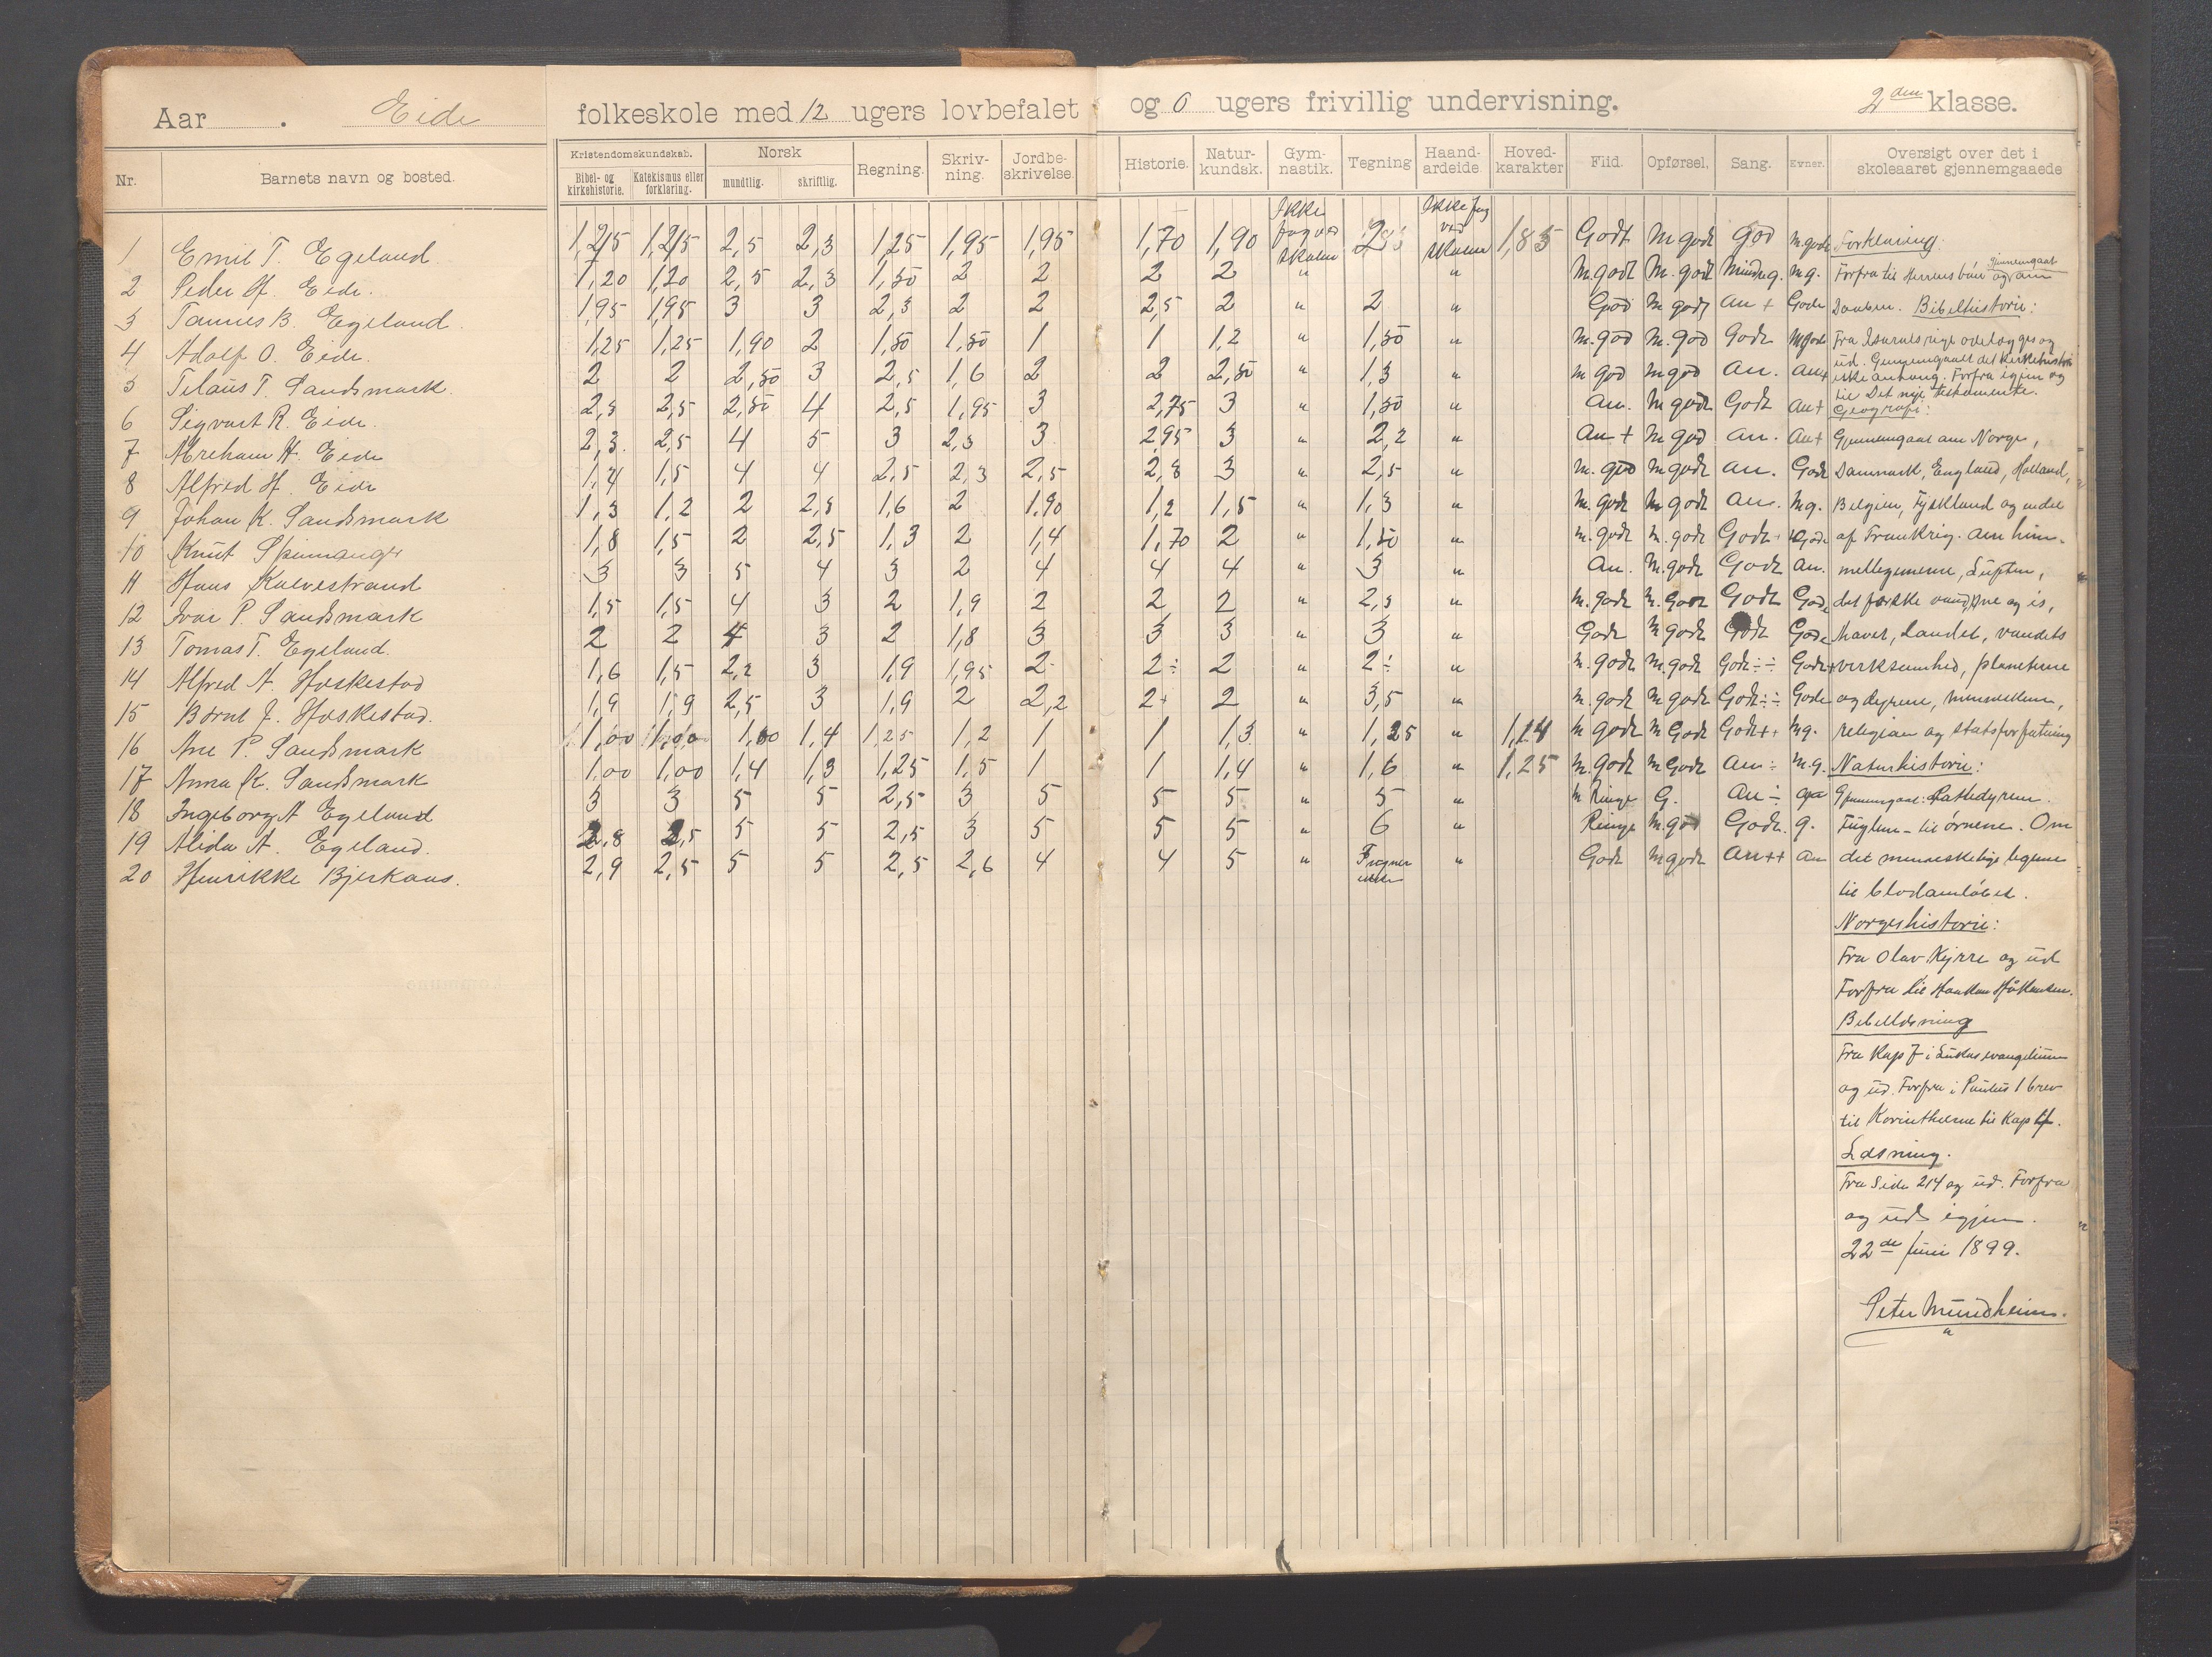 Aar . Eide folkeskole med 12 ugers lovbefalet og 0 ugers frivillig undervisning. 2den klasse.
Nr. Barnets navn og bosted. Kristendomskundskab. Bibel- og kirkehistorie. Katekismus eller forklaring. Norsk mundtlig. skriftlig. Regning. Skriv-ning. Jordbe-skrivelse. Historie. Natur-kundsk. Gym-nastik. Tegning Haand-arbeide. Hoved-karakter Flid. Opførsel. Sang. Evner. Oversigt over det i skoleaaret gjennemgaaede
1 Emil T. Egeland. 1,25 1,25 2,5 2,3 1,25 1,95 1,95 1,70 1,90 Ikke fag ved skolen Ikke fag ved skolen 1,85 Godt M godt god M.godt Forklaring:
2 Peder H. Eide. 1,20 1,20 2,5 2,3 1,50 2 2 2 2 " " M.godt M. godt Mindre g. Mg. Forfra til Herrens bøn gjennemgaat og om
3 B. Egeland. 1,95 1,95 3 3 2,3 2 2 2,5 2 " 2 " God M godt An + Godt Daaben. Bibelhistorie:
4 Adolf O. Eide. 1,25 1,25 1,90 2 1,50 1,50 1 1 1,2 " 1,50 " M.god M.god Godt M godt Fra Israels rige ødelægges og
5 T. Sandsmark. 2 2 2,50 3 2,5 1,6 2 2 2,50 " 1,3 " M god M god An. An+ ud. Gjennemgaaet det kirkehistoriske anhang. Forfra igjen og
6 Sigvart R. Eide. 2,5 2,5 2,50 4 2,5 1,95 3 2,75 3 " 1,50 " An. M godt Godt An+ til Det nye testamente. Geografi:
7 Abreham H. Eide 2,3 2,5 4 5 3 2,3 3 2,95 3 " 2,2 " An + M god An. An+ Gjennemgaat om Norge,
8 Alfred H. Eide 1,4 1,5 4 4 2,5 2,3 2,5 2,8 3 " 2,5 " M. god M godt An. Godt Danmark, England, Holland,
9 Johan K. Sandsmark 1,3 1,2 2 2,5 1,6 2 1,90 1,2 1,5 " 1,3 " M. godt M godt An. Mg. Belgien, Tyskland og endel
10 Knut 1,8 1,5 2 2,5 1,3 2 1,4 1,70 2 " 1,50 " M. godt M. godt Godt Godt af Frankrig. Om him-
11 Hans Kalvestrand 3 3 5 4 3 2 4 4 4 " 3 " An. M.godt Godt An. mellegemerne, Luften,
12 Ivar P. Sandsmark 1,5 1,5 4 3 2 1,9 2 2 2 " 2,5 " M. godt M. Godt Godt Godt det ferske vand, sne og is,
13 Tomas T. Egeland. 2 2 4 3 2 1,8 3 3 3 " 3 " Godt M godt Godt Godt Havet, Landet, vandets
14 Alfred A. Høskestad 1,6 1,5 2,2 3 1,9 1,95 2 2÷ 2 " 2÷ " M. godt M. godt Godt ÷÷ Godt+ virksomhed, planterne
15 Bernt J. Høskestad. 1,9 1,9 2,5 3 1,9 2 2,2 2+ 2 " 3,5 " M. godt M godt Godt÷÷ Godt og dyrene, mennesket,
16 Ane P. Sandsmark 1,00 1,00 1,00 1,4 1,25 1,2 1 1 1,3 " 1,25 " 1,14 M godt M Godt Godt++ Mg. religion og statsforfatning
17 Anna K. Sandsmark 1,00 1,00 1,4 1,3 1,25 1,5 1 1 1,4 " 1,6 " 1,25 M. godt M Godt An ÷ M.g. Naturhistorie:
18 Ingeborg A Egeland 3 3 5 5 2,5 3 5 5 5 " 5 " M Ringe G. An ÷ Gjennemgaat: Pattedyrene.
19 Alida A. Egeland. 2,8 2,5 5 5 2,5 3 5 5 5 " 6 " Ringe M.god Godt. g. Fuglene – til ørnene. Om
20 Henrikke Bjerkaas. 2,9 2,5 5 5 2,5 2,6 4 4 5 " Tegner ikke " Godt M godt An++ An det menneskelige legeme
til blodomløbet.
Norgeshistorie:
Fra Olav Kyrre og ud
Forfra til Haakon Håkonsen.
Bibellæsning
Fra Kap 7 i Lukas evangelium
og ud. Forfra i Paulus 1 brev
til Korintherne til Kap 4.
Læsning.
Fra Side 214 og ud. Forfra
og ud igjen.
22de Juni 1899.
Peter Mundheim.